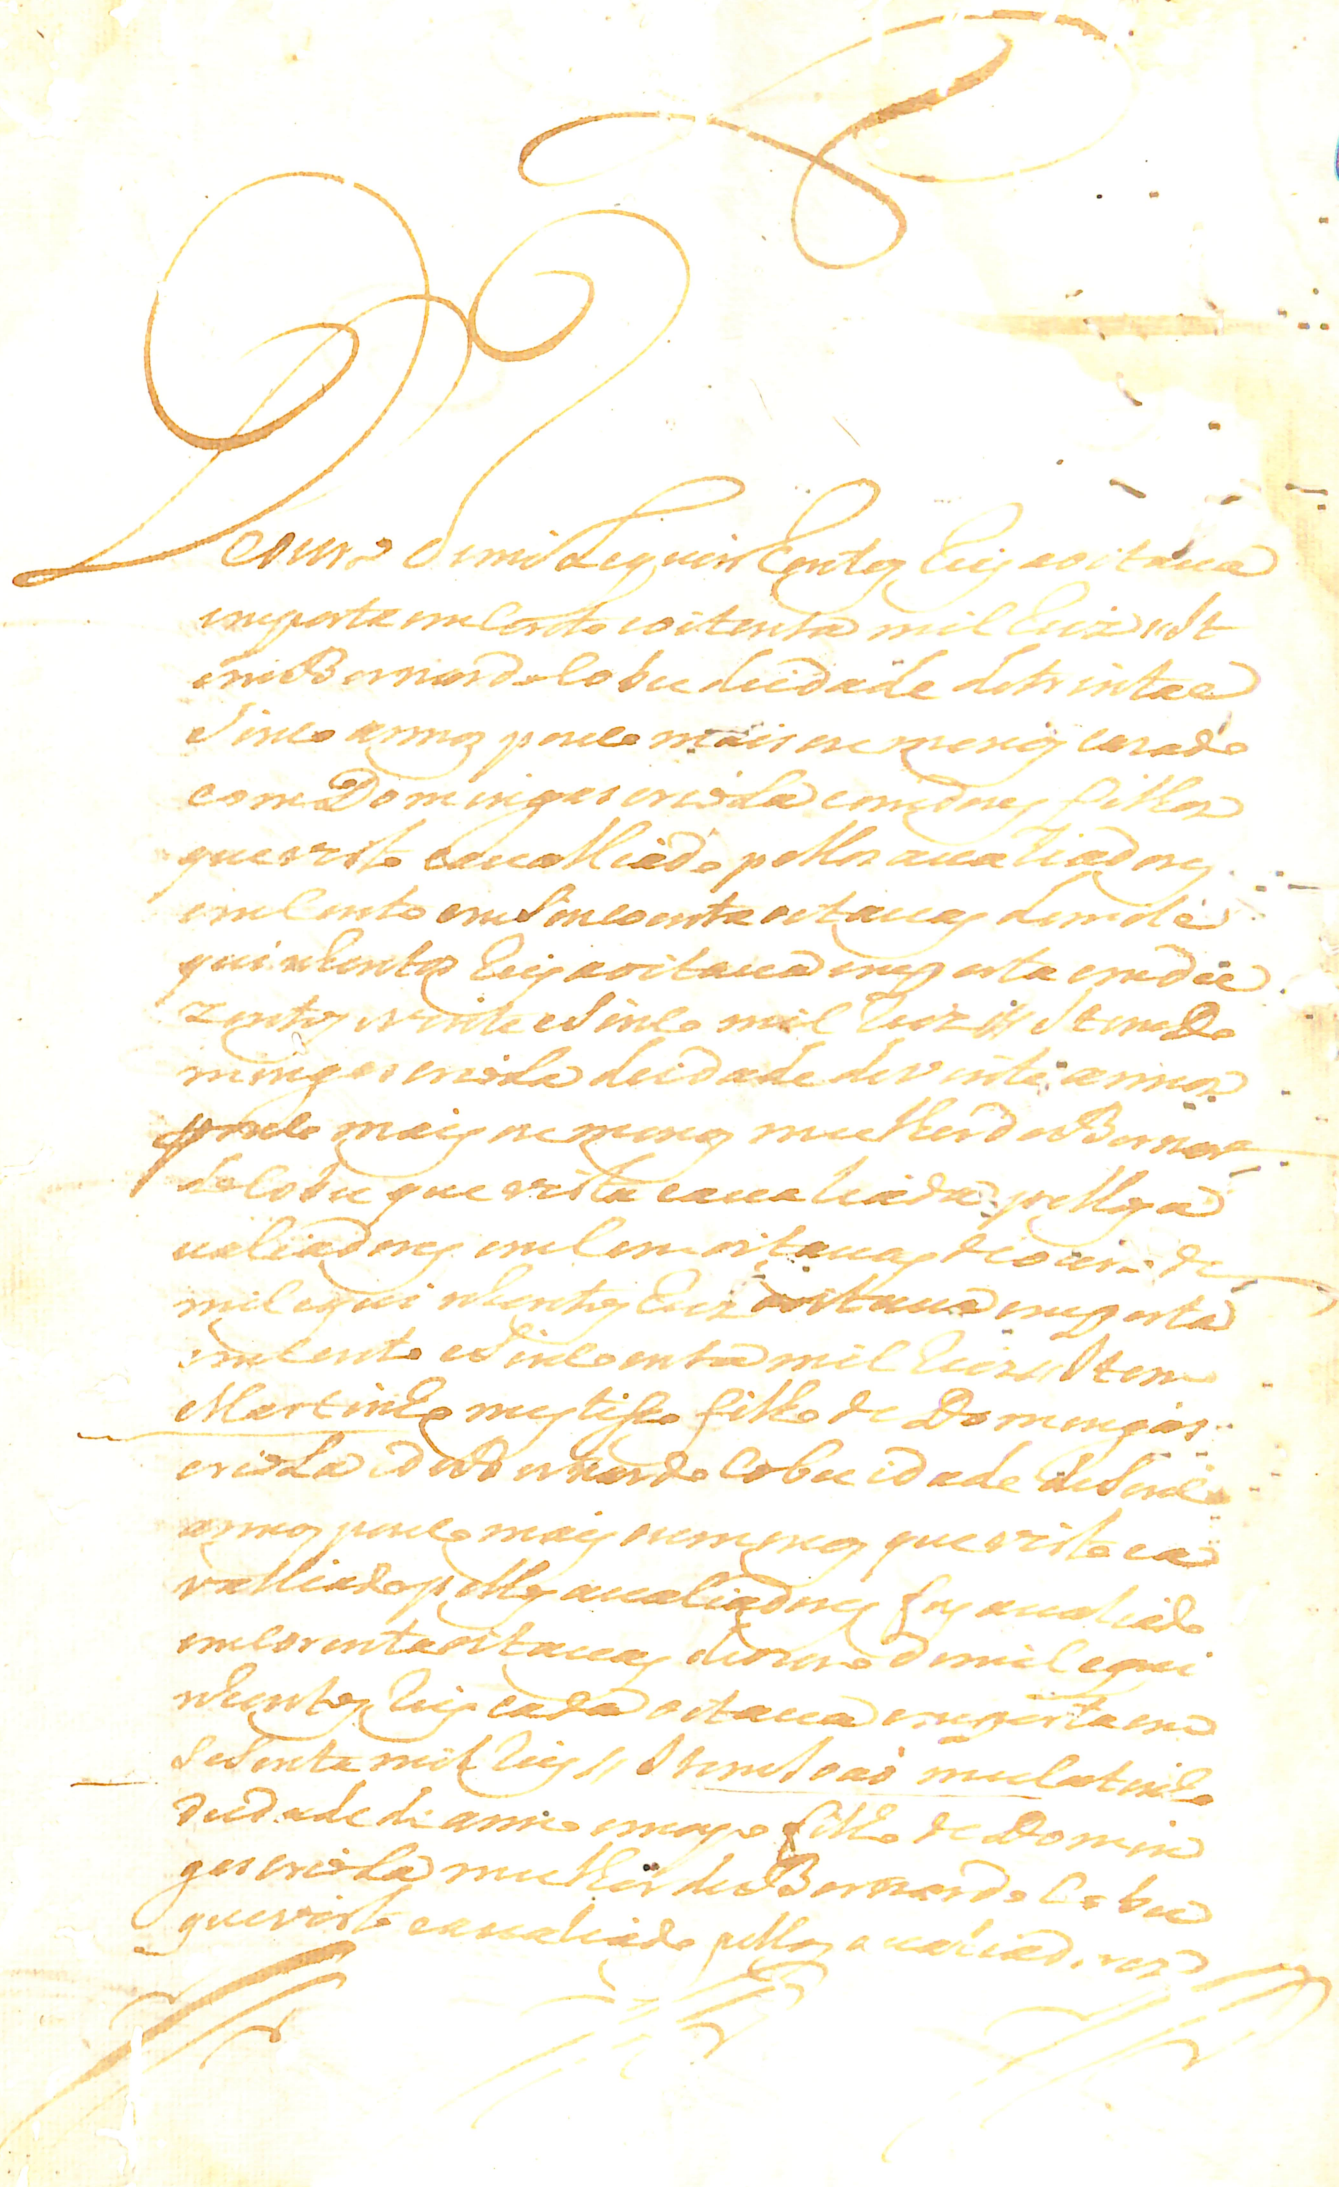 de ouro de mil e quinhentos Reis a oitava
emporta em cento e oitenta mil Reis // It
em Bernardo Cobu de idade de trinta e
sinco annos pouco mais ou menos cazado
com Domingas criola com dous filhos
que visto e avalliado pellos avaliadores
em cento em sincoenta oitavas de mil e
quinhentos Reis a oitava emporta em du
zentos e vinte e sinco mil Reis // Item Do
mingas criola de idade de vinte annos
pouco mais ou menos mulher de Bernar
do Cobu que vista e avaliada pellos a
valiadores em cem oitavas de ouro de
mil e quinhentos Reis a oitava emporta
em cento e sincoenta mil Reis // Item
Martinho mestisso filho de Domingas
criola e de Bernardo Cobu idade de sinco
annos pouco mais ou menos que visto e a
valliado pellos avaliadores foy avaliado
em corenta oitavas de ouro de mil e qui
nhentos Reis cada oitava emporta em
sesenta mil Reis // Item Joaõ mulatinho
de idade de anno e meyo filho de Domin
gas criola mulher de Bernardo Cobu
que visto e avaliado pellos avaliadores